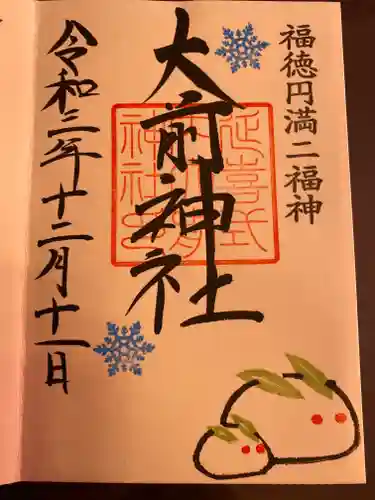 福徳円満二福神
大前神社
延喜式
神社
令和二年十二月十一日